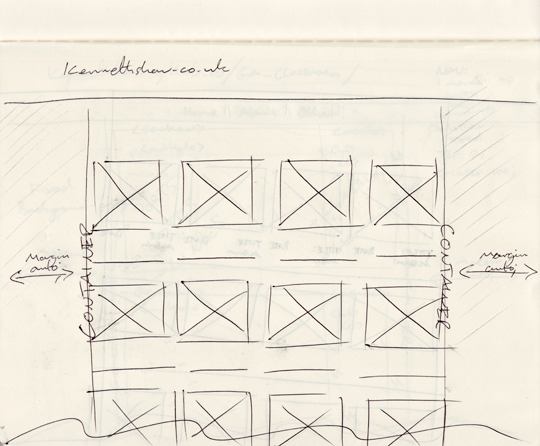 Kennethshaw-co.uk
CONTAINER
CONTAINER
Margin
auto;
Margin
auto;